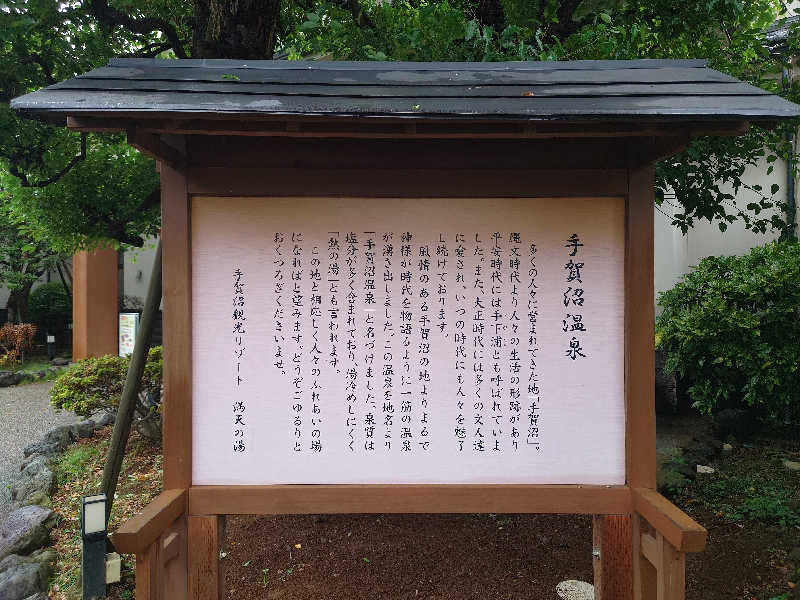 手賀沼温泉
多くの人々に営まれてきた地「手賀沼」。
縄文時代より人々の生活の形跡があり
平安時代には手下水海とも呼ばれていま
した。また、大正時代には多くの文人達
に愛され、いつの時代にも人々を魅了
し続けております。
風情のある手賀沼の地よりまるで
神様が時代を物語るように一筋の温泉
が湧き出しました。この温泉を地名より
「手賀沼温泉」と名づけました。泉質は
塩分が多く含まれており、湯冷めしにくく
「熱の湯」とも言われます。
この地と相応しく人々のふれあいの場
になればと望みます。どうぞごゆるりと
おくつろぎくださいませ。
手賀沼観光リゾート 満天の湯